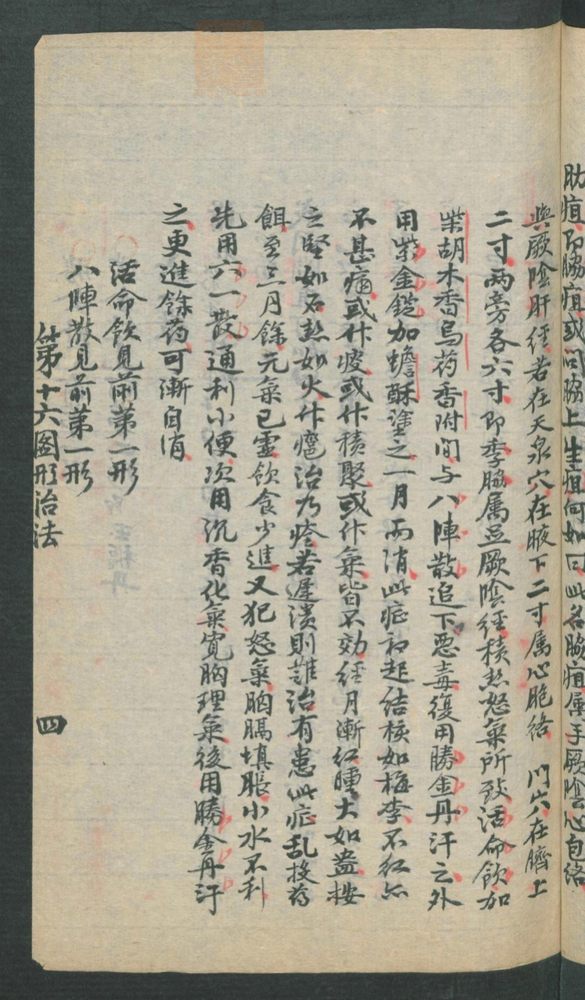 肋疽 疽或问胁上生疽何如曰此名胁疽属手厥陰心包络
與厥陰肝经若在天泉穴在腋下二寸属心胞络 门穴在臍上
二寸两旁各六寸即季脇属足厥陰经積热怒氣所致活命飲加
柴胡木香烏药香附间与八陣散追下恶毒復用勝金丹汗之外
用紫金錠加蟾酥塗之一月而消此症初起结核如梅李不红亦
不甚痛或作痰或作積聚或作氣皆不効经月漸红腫大如盎按
之堅如石热如火作癰治乃痊若遲溃則難治有患此症乱投药
餌至三月餘元氣已虚飲食少進又犯怒氣胸膈填脹小水不利
先用六一散通利小便次用沉香化氣寬胸理氣後用勝金丹汗
之更進餘药可漸自消
活命飲見前第一形
八陣散見前第一形
第十六图形治法
四